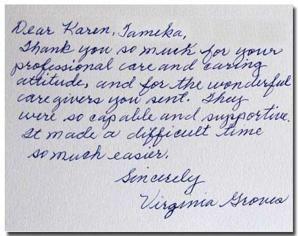 Dear Karen, Tameka,
Thank you so much for your
professional care and caring
attitude, and for the wonderful
care givers you sent. They
were so capable and supportive.
It made a difficult time
so much easier.
Sincerely
Virginia Groves